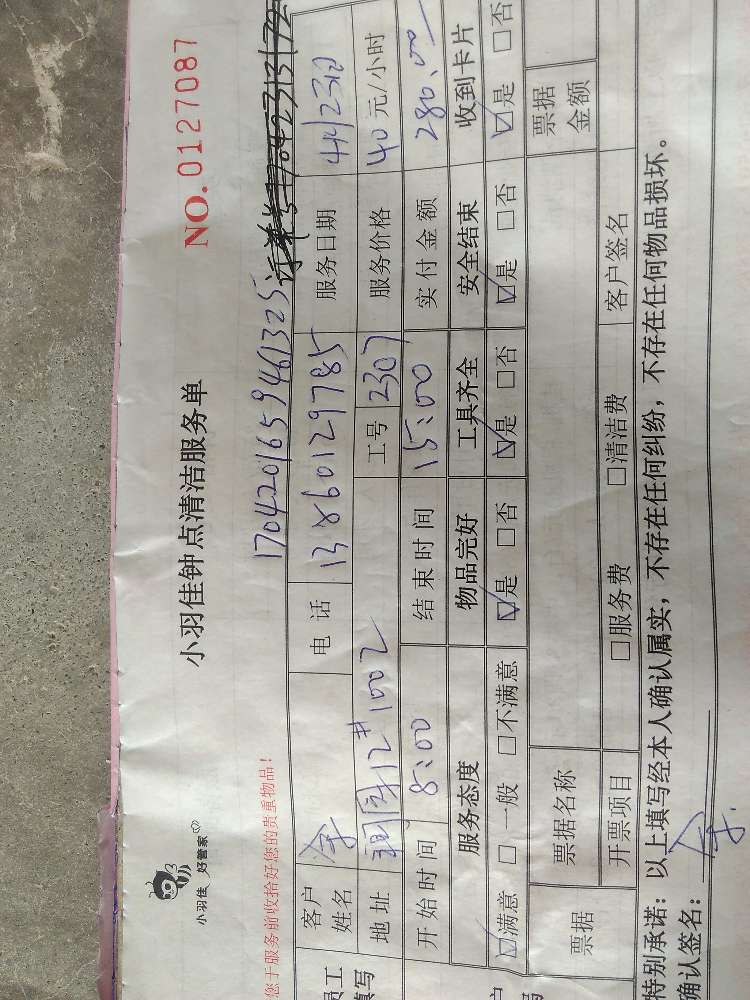 小羽佳 好管家
小羽佳钟点清洁服务单
NO.0127087
您于服务前收拾好您的贵重物品！
1704201659461325
客户姓名 余 电话 13860129785 服务日期
地址 1002 工号 2307 服务价格 40元/小时
开始时间 8:00 结束时间 15:00 实付金额 280.00
服务态度 物品完好 工具齐全 安全结束 收到卡片
☑满意 □一般 □不满意 ☑是 □否 ☑是 □否 ☑是 □否 ☑是 □否
票据 票据名称 票据金额
开票项目 □服务费 □清洁费 客户签名
员工
填写
户
特别承诺：以上填写经本人确认属实，不存在任何纠纷，不存在任何物品损坏。
确认签名：余